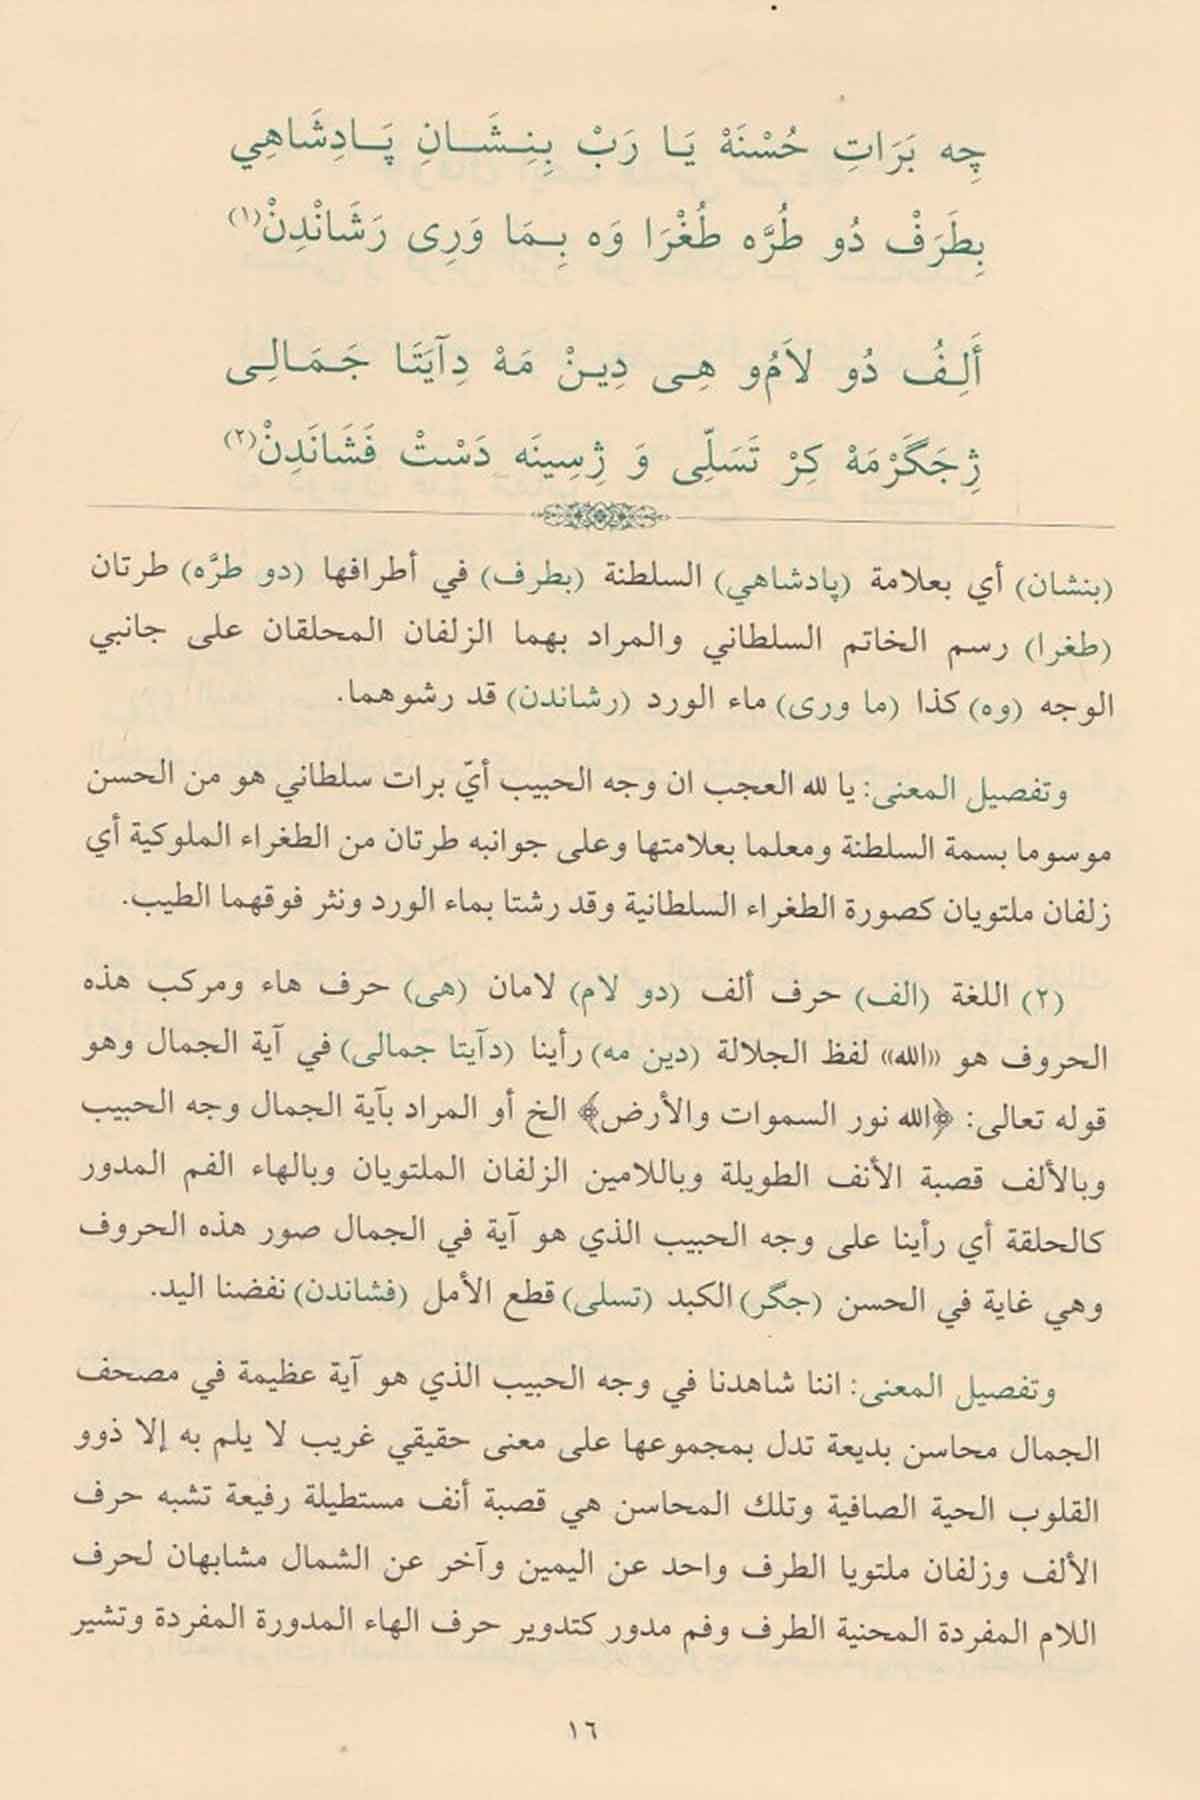 چِه بَرَاتِ حُسْنَهْ يَـا رَبْ بِنِـشَـانِ پَـادِشَاهِي
بِطَرَفْ دُو طُرَّه طُغْرَا وَه بِـمَا وَرِى رَشَانْدِنْ(١)
أَلِـفُ دُو لاَمُو هِـى دِيـنْ مَهْ دِآيَتَا جَـمَـالِـى
ژِجَگَرْمَهْ كِرْ تَسَلِّى وَ ژِسِينَه دَسْتْ فَشَانَدِنْ(٢)
(بنشان) أي بعلامة (پادشاهي) السلطنة (بطرف) في أطرافها (دو طرَّه) طرتان
(طغرا) رسم الخاتم السلطاني والمراد بهما الزلفان المحلقان على جانبي
الوجه (وه) كذا (ما ورى) ماء الورد (رشاندن) قد رشوهما.
وتفصيل المعنى: يا لله العجب ان وجه الحبيب أيّ برات سلطاني هو من الحسن
موسوما بسمة السلطنة ومعلما بعلامتها وعلى جوانبه طرتان من الطغراء الملوكية أي
زلفان ملتويان كصورة الطغراء السلطانية وقد رشتا بماء الورد ونثر فوقهما الطيب.
(٢) اللغة (الف) حرف ألف (دو لام) لامان (هى) حرف هاء ومركب هذه
الحروف هو «الله» لفظ الجلالة (دين مه) رأينا (دآيتا جمالى) في آية الجمال وهو
قوله تعالى: ﴿الله نور السموات والأرض﴾ الخ أو المراد بآية الجمال وجه الحبيب
وبالألف قصبة الأنف الطويلة وباللامين الزلفان الملتويان وبالهاء الفم المدور
كالحلقة أي رأينا على وجه الحبيب الذي هو آية في الجمال صور هذه الحروف
وهي غاية في الحسن (جگر) الكبد (تسلى) قطع الأمل (فشاندن) نفضنا اليد.
وتفصيل المعنى: اننا شاهدنا في وجه الحبيب الذي هو آية عظيمة في مصحف
الجمال محاسن بديعة تدل بمجموعها على معنى حقيقي غريب لا يلم به إلا ذوو
القلوب الحية الصافية وتلك المحاسن هي قصبة أنف مستطيلة رفيعة تشبه حرف
الألف وزلفان ملتويا الطرف واحد عن اليمين وآخر عن الشمال مشابهان لحرف
اللام المفردة المحنية الطرف وفم مدور كتدوير حرف الهاء المدورة المفردة وتشير
١٦